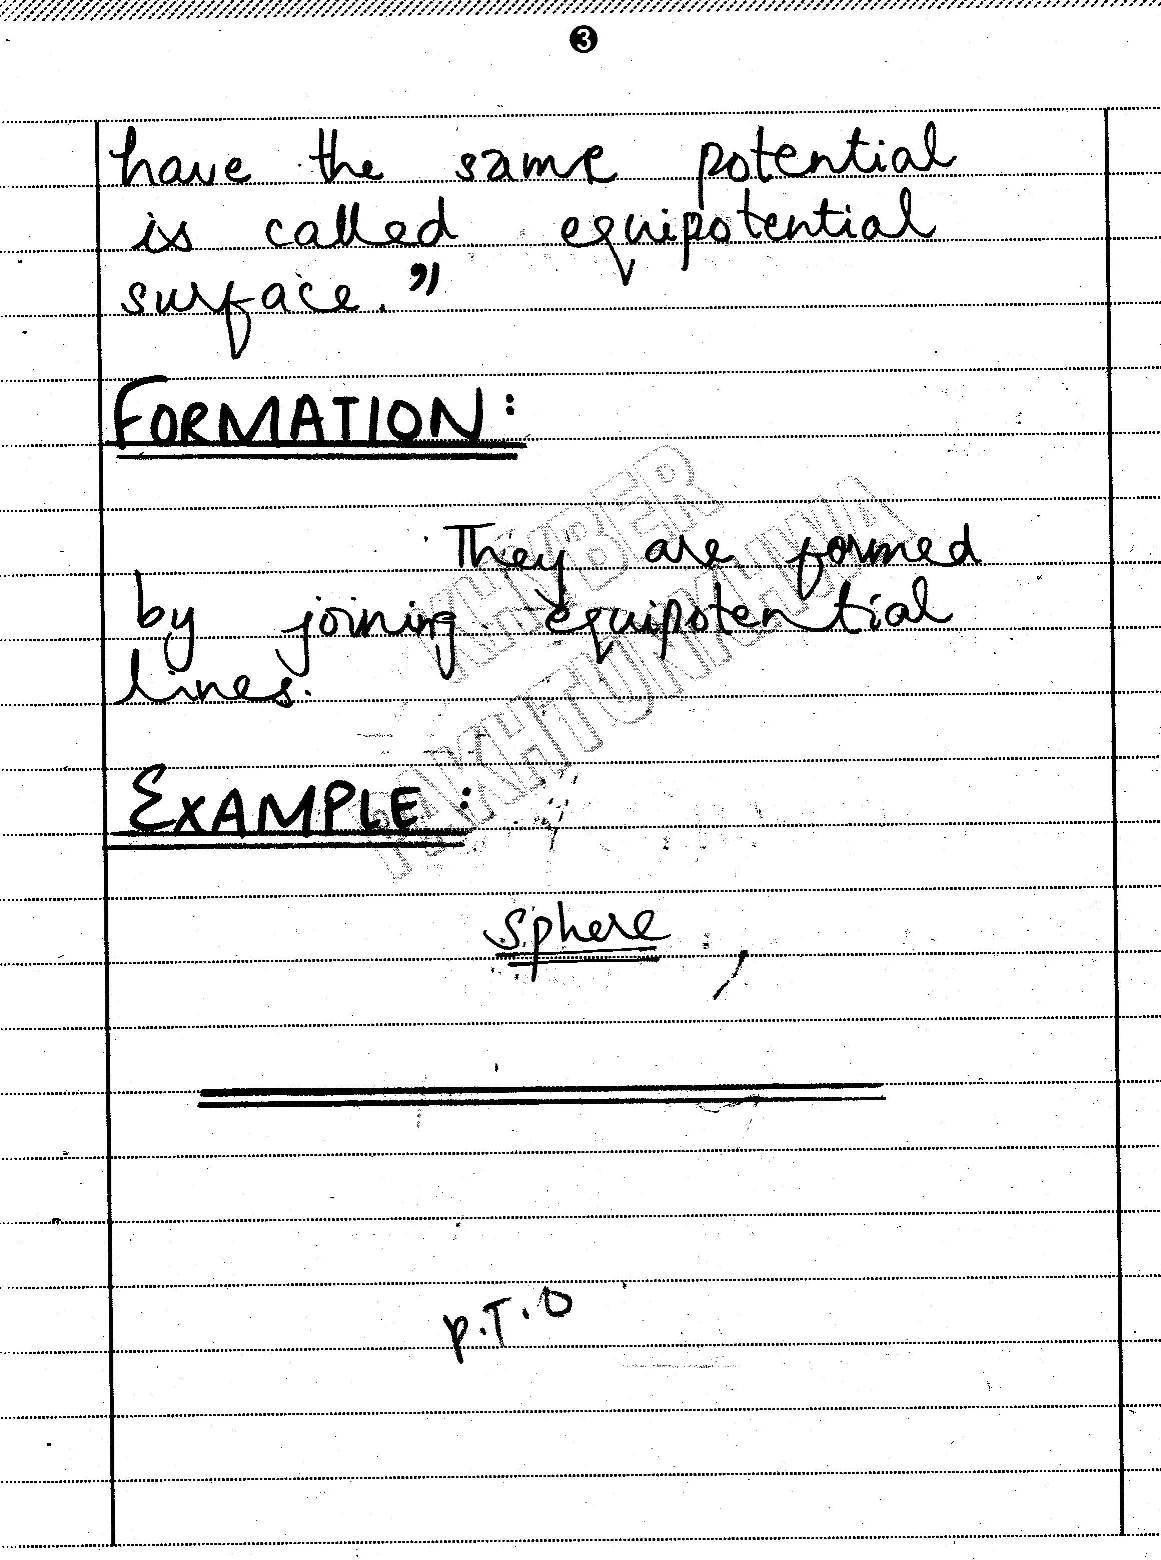 3
have the same potential
is called equipotential
surface."
FORMATION:
They are formed
by joining equipotential
lines.
EXAMPLE:
sphere
P.T.O
KHYBER
PAKHTUNKHWA